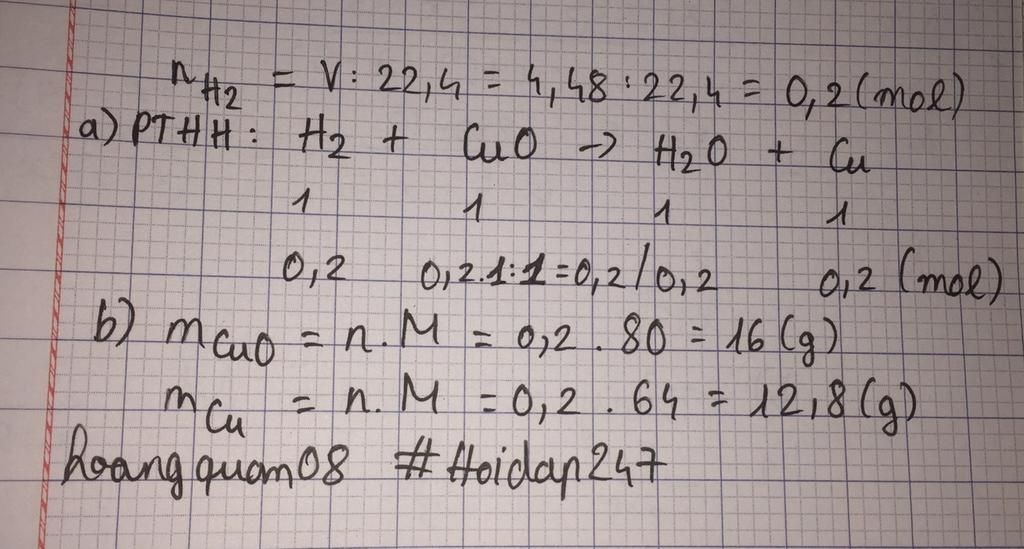 nH2 = V : 22,4 = 4,48 : 22,4 = 0,2 (mol)
a) PTHH : H2 + CuO → H2O + Cu
1 1 1 1
0,2 0,2.1:1=0,2/0,2 0,2 (mol)
b) mCuO = n.M = 0,2 . 80 = 16 (g)
mCu = n.M = 0,2 . 64 = 12,8 (g)
hoangquan08 #Hoidap247